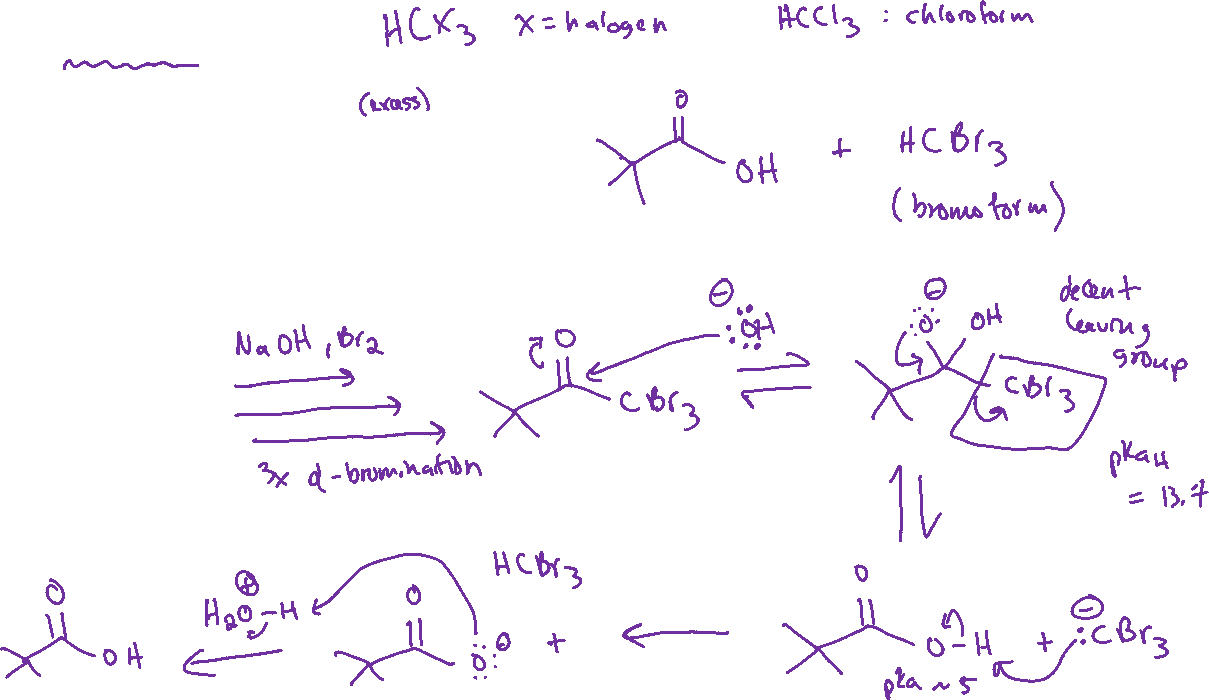 HCX3 X = halogen HCCl3 : chloroform
(excess)
O
OH + HCBr3
(bromoform)
NaOH, Br2
3x α-bromination
O
CBr3
⊖
:OH
⊖
:O: OH
CBr3
decent
leaving
group
pKaH
= 13.7
O
OH
⊕
H2O-H
O
:O: ⊖
+
HCBr3
O
O-H
pKa ~ 5
+
⊖
:CBr3